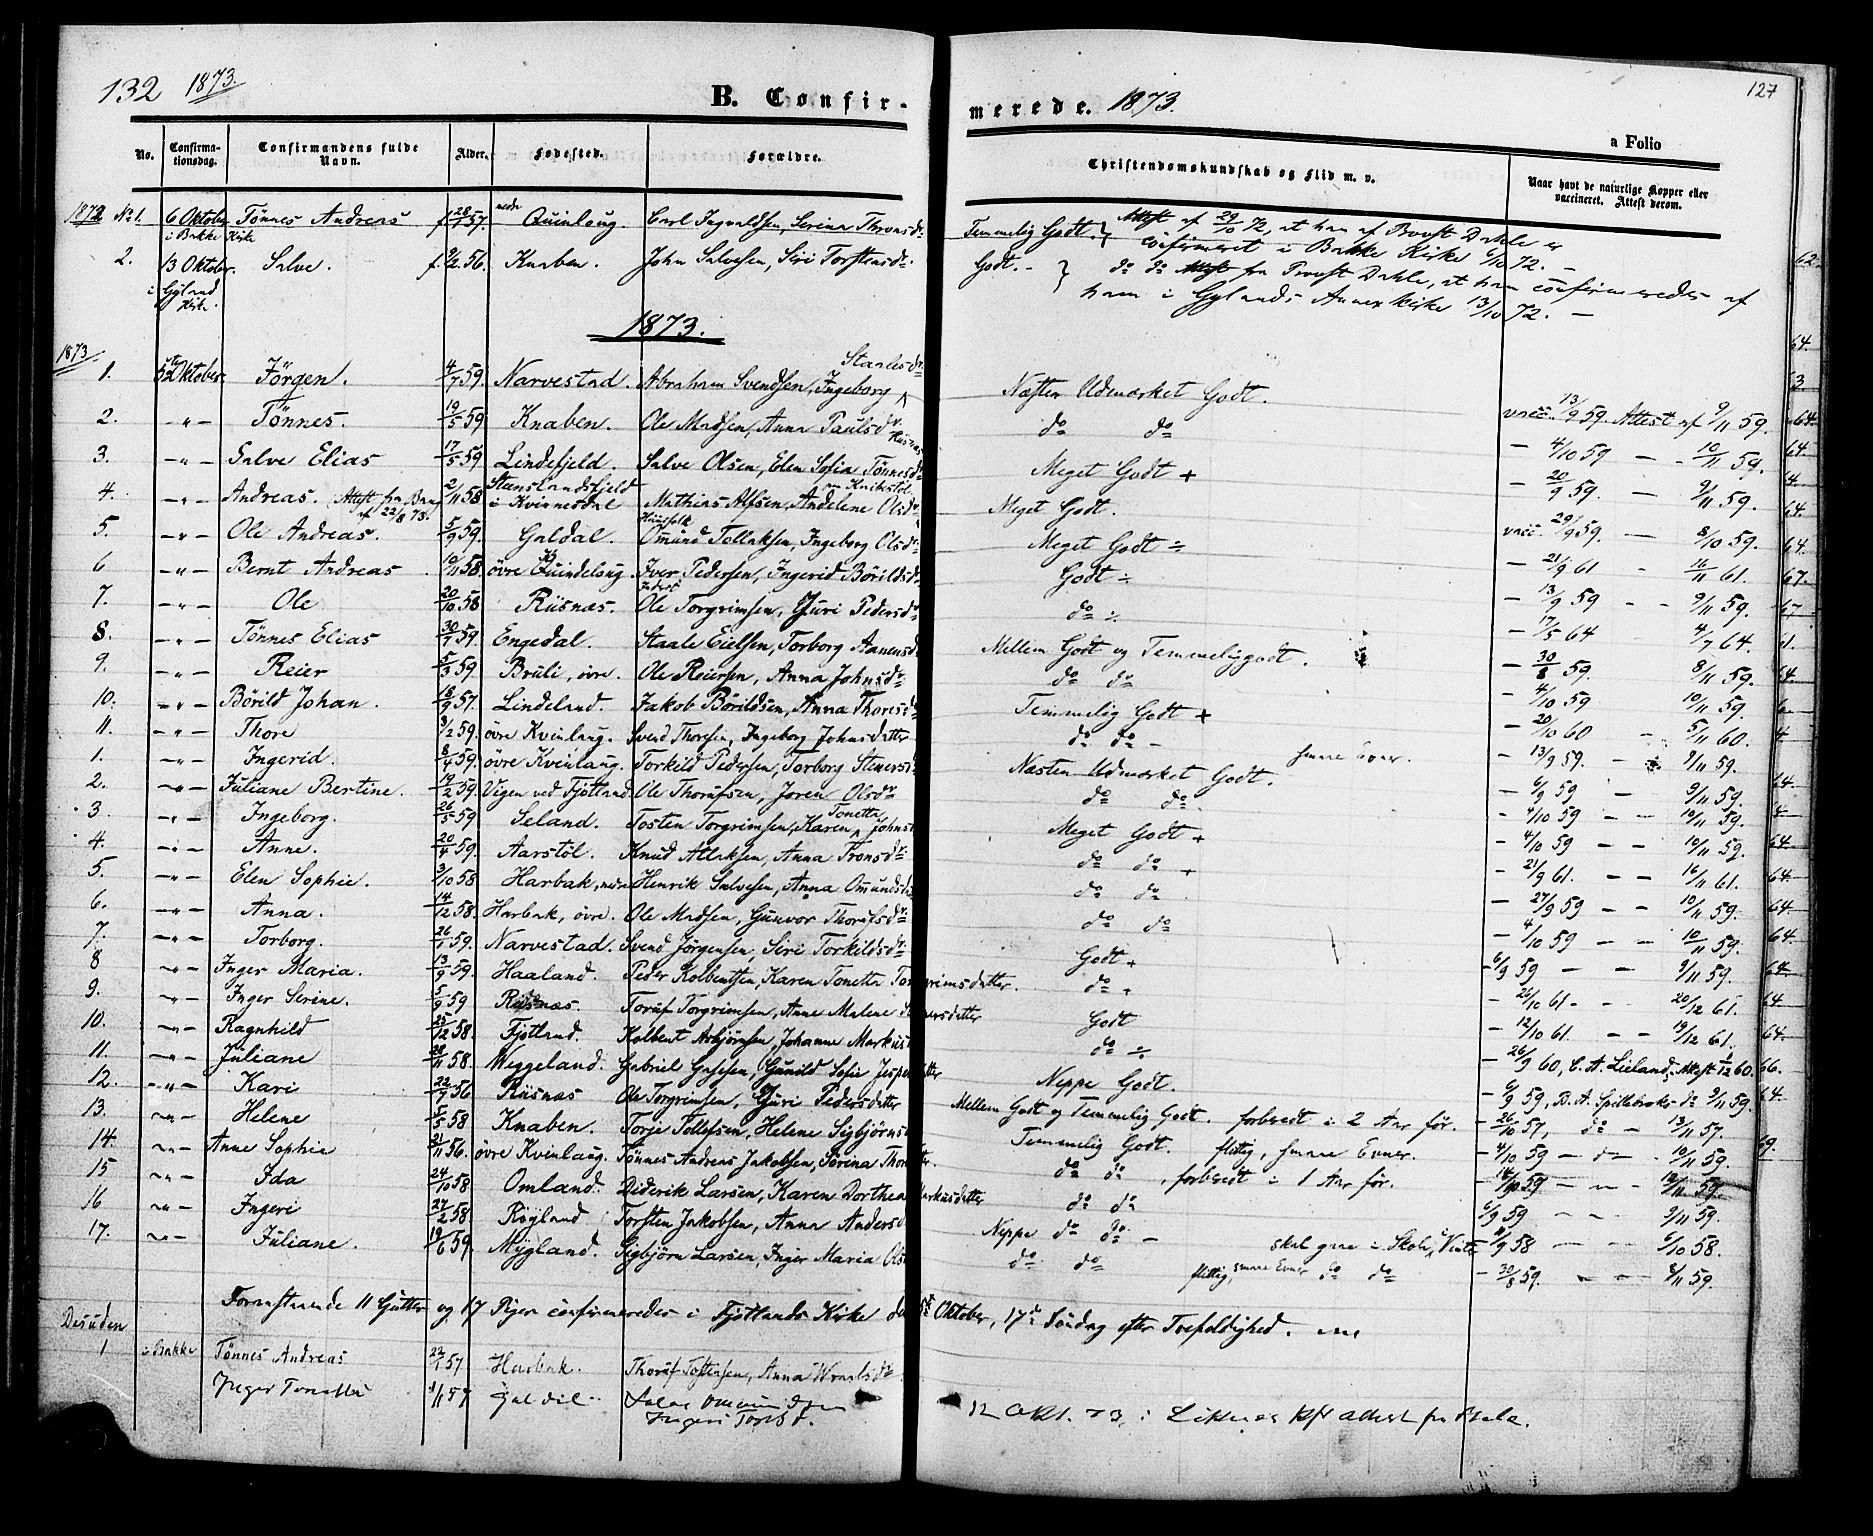 132 1873.
B. Confir-
No. Confirma-tionsdag. Confirmandens fulde Navn. Alder. Fødested. Forældre.
1872 No 1. 6 Oktober i Bakke Kirke Tønnes Andreas f. 28/1 57. nedre Quinlaug. Carl Ingvaldsen, Serine Thronsdr
2. 13 Oktober. i Gyland Kirke. Salve. f. 2/2 56. Knaben. John Salvesen, Siri Torstensdr
1873.
1873
1. 5te Oktober. Jörgen. 4/7 59. Narvestad. Abraham Svendsen, Ingeborg Staalesdr
2. -"- Tönnes. 19/5 59 Knaben. Ole Madsen, Anna Paulsdr
3. -"- Salve Elias 17/5 59 Lindefjeld. Salve Olsen, Elen Sofia Tönnesdr Risnæs
4. -"- Andreas. Attest fra Bang af 22/8 73. 2/11 58 Steenslandsfjeld i Kvinesdal Mathias Alfsen, Andelene Olsdr
5. -"- Ole Andreas. 5/9 59. Galdal. Huusfolk Omund Tollaksen, Ingeborg Olsdr
6 -"- Bernt Andreas 10/11 58. övre Quindelaug Iver Pedersen, Ingerid Börildsdr
7. -"- Ole 20/10 58 Risnæs. Ole Torgrimsen, Guri Pedersdr
8. -"- Tönnes Elias 30/7 59. Engedal. Staale Eielsen, Torborg Aanensd
9. -"- Reier 5/3 59 Bruli, övre. Ole Reiersen, Anna Johnsdr
10. -"- Börild Johan. 18/9 57. Lindeland. Jakob Börildsen, Anna Thoresdr
11. -"- Thore 3/2 59. övre Kvinlaug. Svend Thorsen, Ingeborg Johnsdatter
1. -"- Ingerid. 8/4 59. övre Kvinlaug. Torkild Pedersen, Torborg Stenersd
2. -"- Juliane Bertine. 19/2 59. Vigen ved Fjotland. Ole Thorufsen, Joren Olsdr
3. -"- Ingeborg. 26/5 59 Seland. Tosten Torgrimsen, Karen Tonetta Johnsd
4. -"- Anne. 20/4 59. Aarstöl. Knud Atlaksen, Anna Tronsdr
5. -"- Elen Sophie. 3/10 58 Harbak, nedre Henrik Salvesen, Anna Omundsd
6. -"- Anna. 14/12 58. Harbak, övre. Ole Madsen, Gunvor Thorufsdr
7. -"- Torborg. 26/1 59. Narvestad. Svend Jörgensen, Siri Torkildsdr
8 -"- Inger Maria. 13/9 59. Haaland. Peder Kolbentsen, Karen Tonetta Torgrimsdatter.
9. -"- Inger Serine. 5/9 59 Risnæs. Toruf Torgrimsen, Anne Malene
10. -"- Ragnhild 25/12 58. Fjotland. Kolbent Asbjörnsen, Johanne Markus
11. -"- Juliane 28/11 58. Veggeland. Gabriel Gasesen, Gunild Sofie Jespersdatter
12. -"- Kari 22/9 56 Risnæs Ole Torgrimsen, Guri Pedersdatter
13. -"- Helene 5/5 58 Knaben. Torje Tollefsen, Helene Sigbjörnsd
14. -"- Anne Sophia 21/11 56. övre Kvinlaug. Tönnes Andreas Jakobsen, Sörina Thorsdatter.
15 -"- Ida 24/10 58 Omland. Diderik Larsen, Karen Dorthea Markusdatter
16 -"- Ingeri 27/2 58 Röyland Torsten Jakobsen, Anna Andersd
17. -"- Juliane. 19/6 59. Mygland. Sigbjörn Larsen, Inger Maria Ols
Foranstaaende 11 Gutter og 17 Piger confirmeredes i Fjotlands Kirke den 5te Oktober, 17de Söndag efter Trefoldighed.
Desuden
1 i Bakke Tønnes Andreas 22/1 57. Harbak. Thoruf Tostensen, Anna
Inger Tonette 1/11 57 Galdal Omundsen Ingeri
merede. 1873.
127
a Folio
Christendomskundskab og Flid m. v. Naar havt de naturlige Kopper eller vaccineret. Attest derom.
Temmelig Godt. } Attest af 29/10 72, at han af Provst Dahle er confirmeret i Bakke Kirke 6/10 72. -
Godt. - } do do Attest fra Provst Dahle, at han confirmeredes af ham i Gylands Annexkirke 13/10 72. -
Næsten Udmærket Godt. vacc. 13/9 59. Attest af 9/11 59.
do do - 4/10 59 - - 10/11 59.
Meget Godt + - 20/9 59. - 9/11 59.
Meget Godt. vacc. 29/9 59. - 8/10 59.
Meget Godt ÷ - 21/9 61 - 16/11 61.
Godt ÷ - 13/9 59 - - 9/11 59.
do ÷ - 17/5 64 - 4/7 64.
Mellem Godt og Temmeliggodt. - 30/8 59. - 8/11 59.
do do - 4/10 59 - 10/11 59.
Temmelig Godt + - 20/10 60 - 5/11 60.
do do - smaae Evner. - 13/9 59. - 9/11 59.
Næsten Udmærket Godt. - 6/9 59 - 9/11 59.
do do - 4/10 59 - - 10/11 59.
Meget Godt + - 4/10 59 - - 10/11 59.
do do + - 21/9 61. - - 16/11 61.
do do. - 27/9 59 - - 10/11 59.
do do - 4/10 59 - - 10/11 59.
Godt + - 6/9 59 - - 9/11 59.
do + - 26/10 61. - - 20/12 61.
Godt - 12/10 61. - - 19/12 61.
do ÷ - 26/9 60, C. A. Lieland, Attest 1/12 60.
Neppe Godt. - 6/9 59, B. A. Spillebroks do 9/11 59.
Mellem Godt og Temmelig Godt. forberedt i 2 Aar för. - 26/10 57, do - 13/11 57.
Temmelig Godt. flittig, smaae Evner. - 4/10 59 - do - 10/11 59.
do do , forberedt i 1 Aar för. - 14/10 59 - " - 12/11 59.
do do 6/9 59 - - 9/11 59.
Neppe do do - skal gaae i Skole i Vinter - /9 58 - - 6/10 58.
do do flittig, smaae Evner do do - 30/8 59. - - 8/11 59.
12 Okt. 73 i Liknes Kirke attest fra